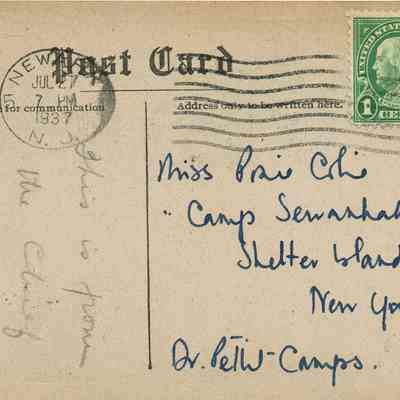 Post Card
for communication
Address only to be written here.
NEW
JUL 27
7 PM
1937
N. J.
UNITED STATES
1
This is from
the Chief
Miss
"Camp
Shelter Island
New Yo
Dr. Pettit-Camps.